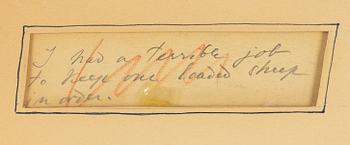 I had a terrible job
to keep one loaded sheep
in order.